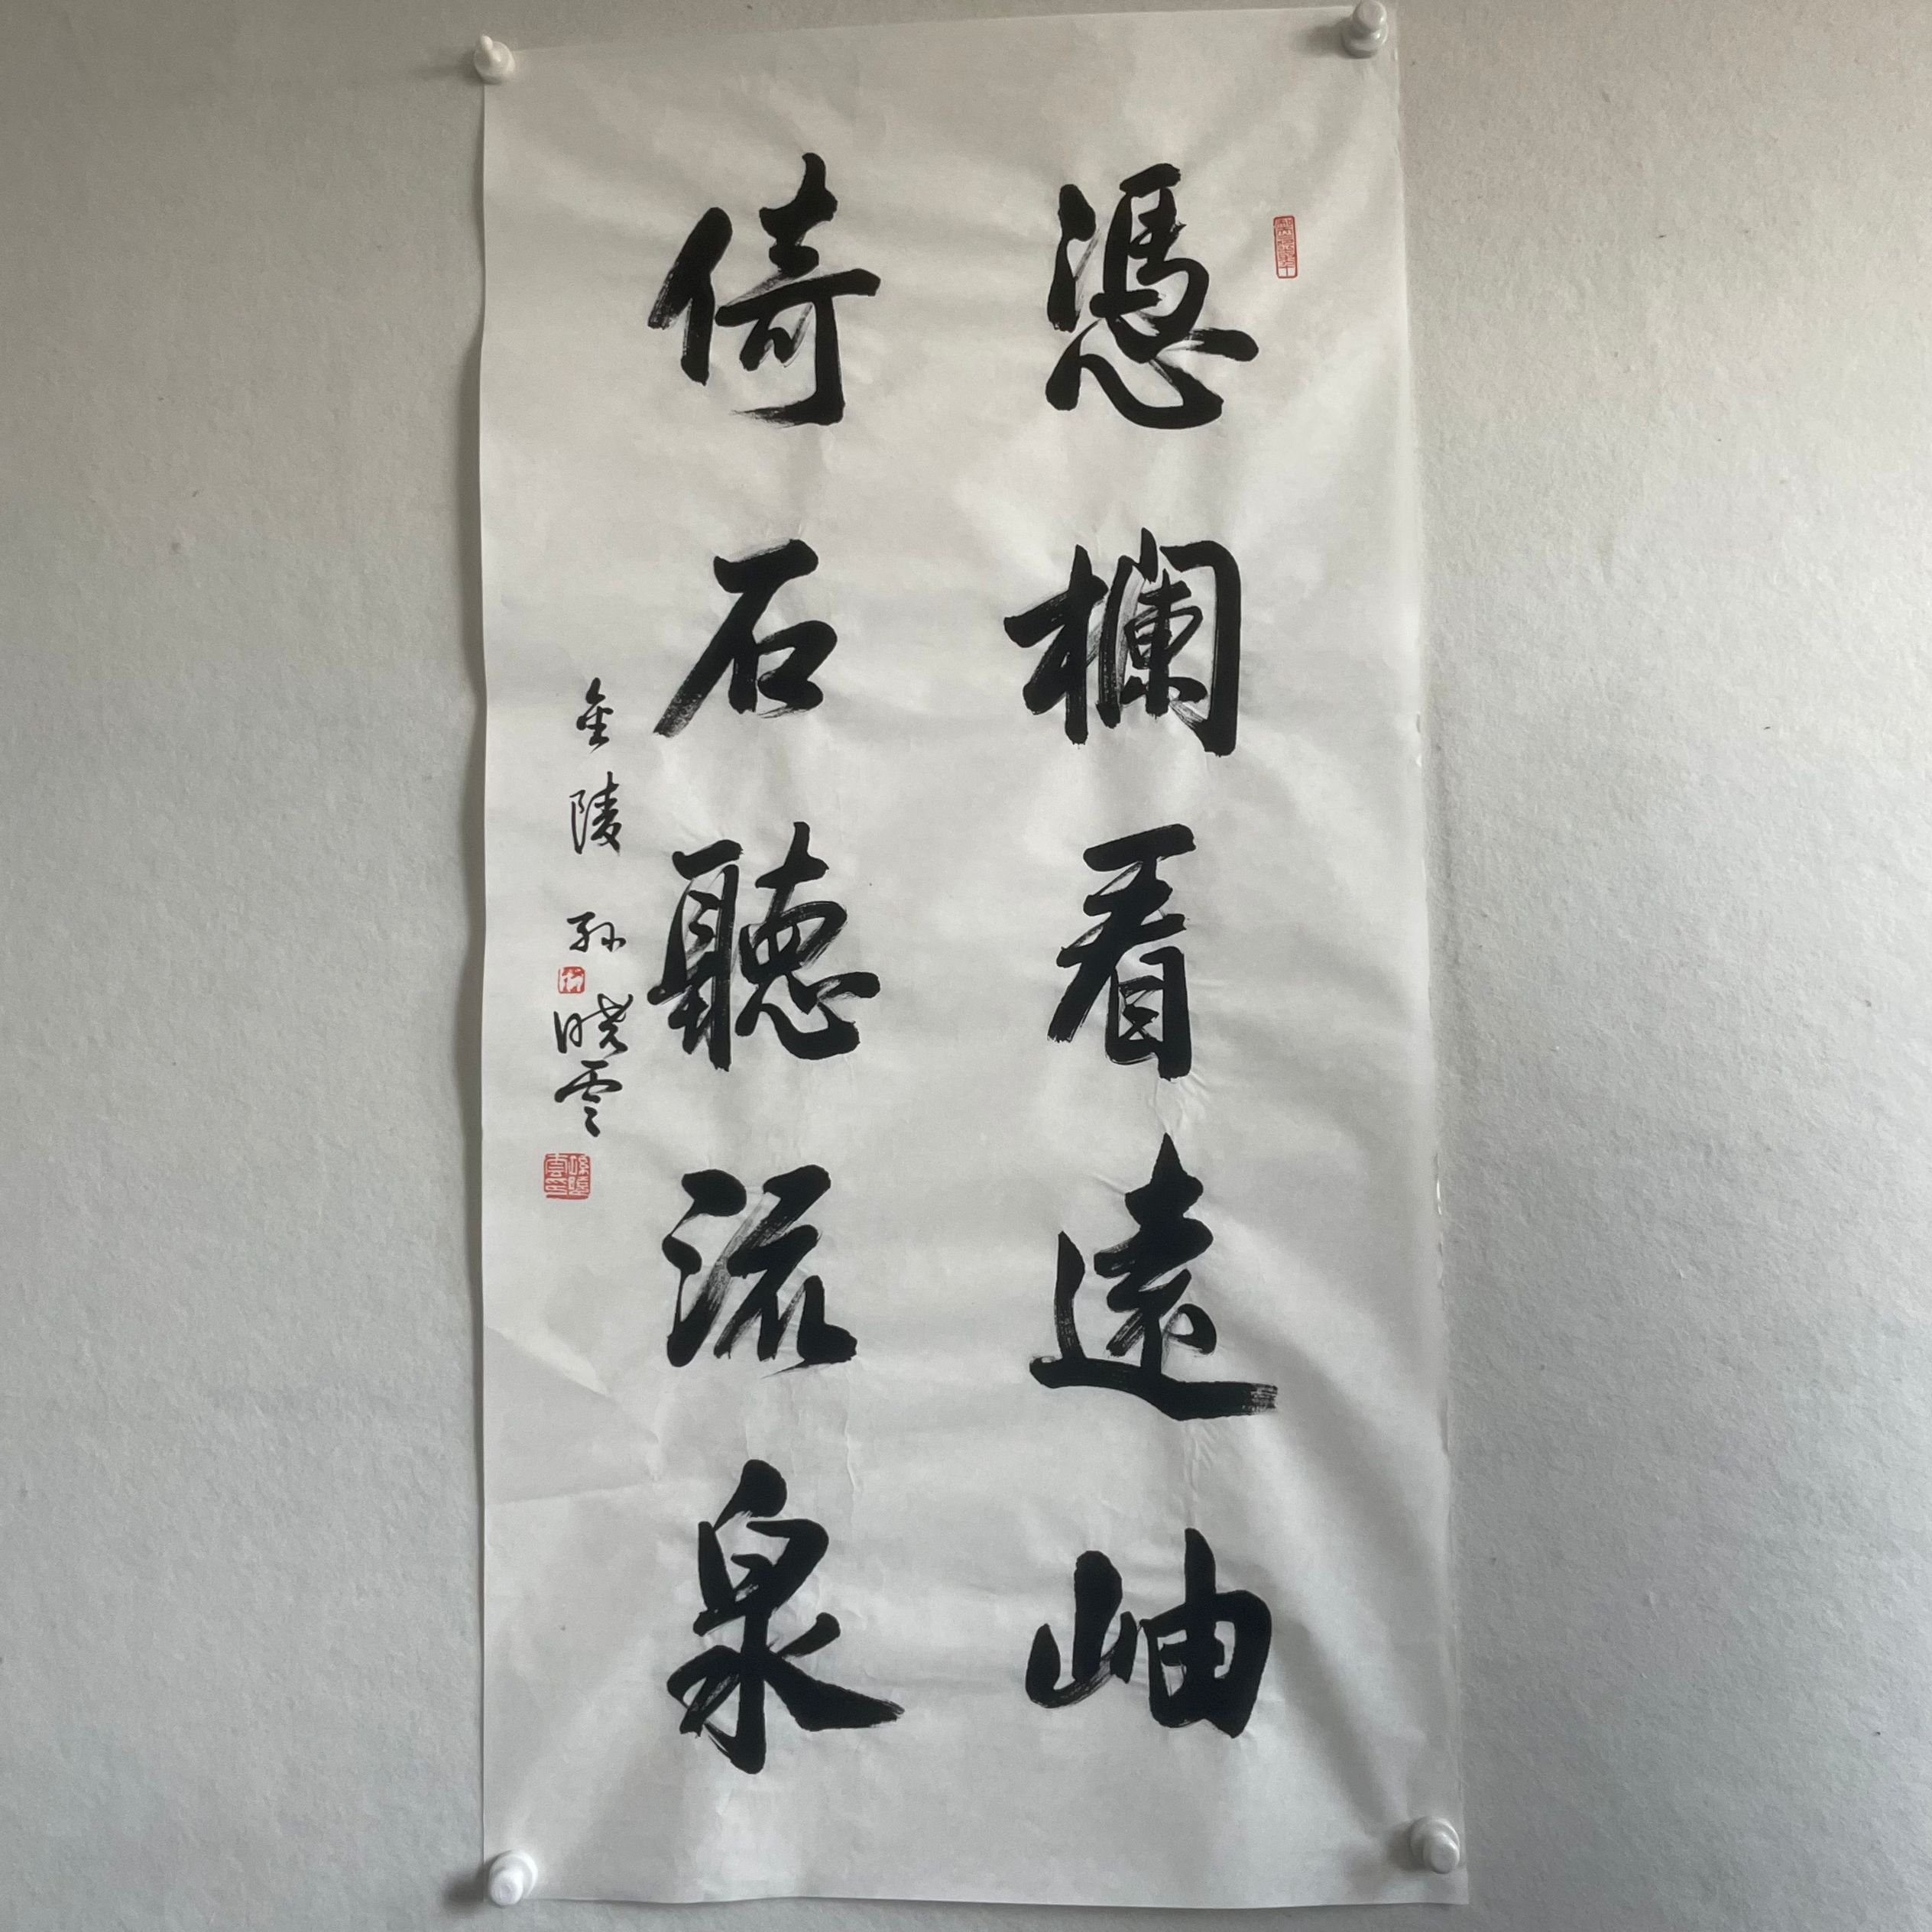 憑欄看遠岫
倚石聽流泉
金陵孙晓雲